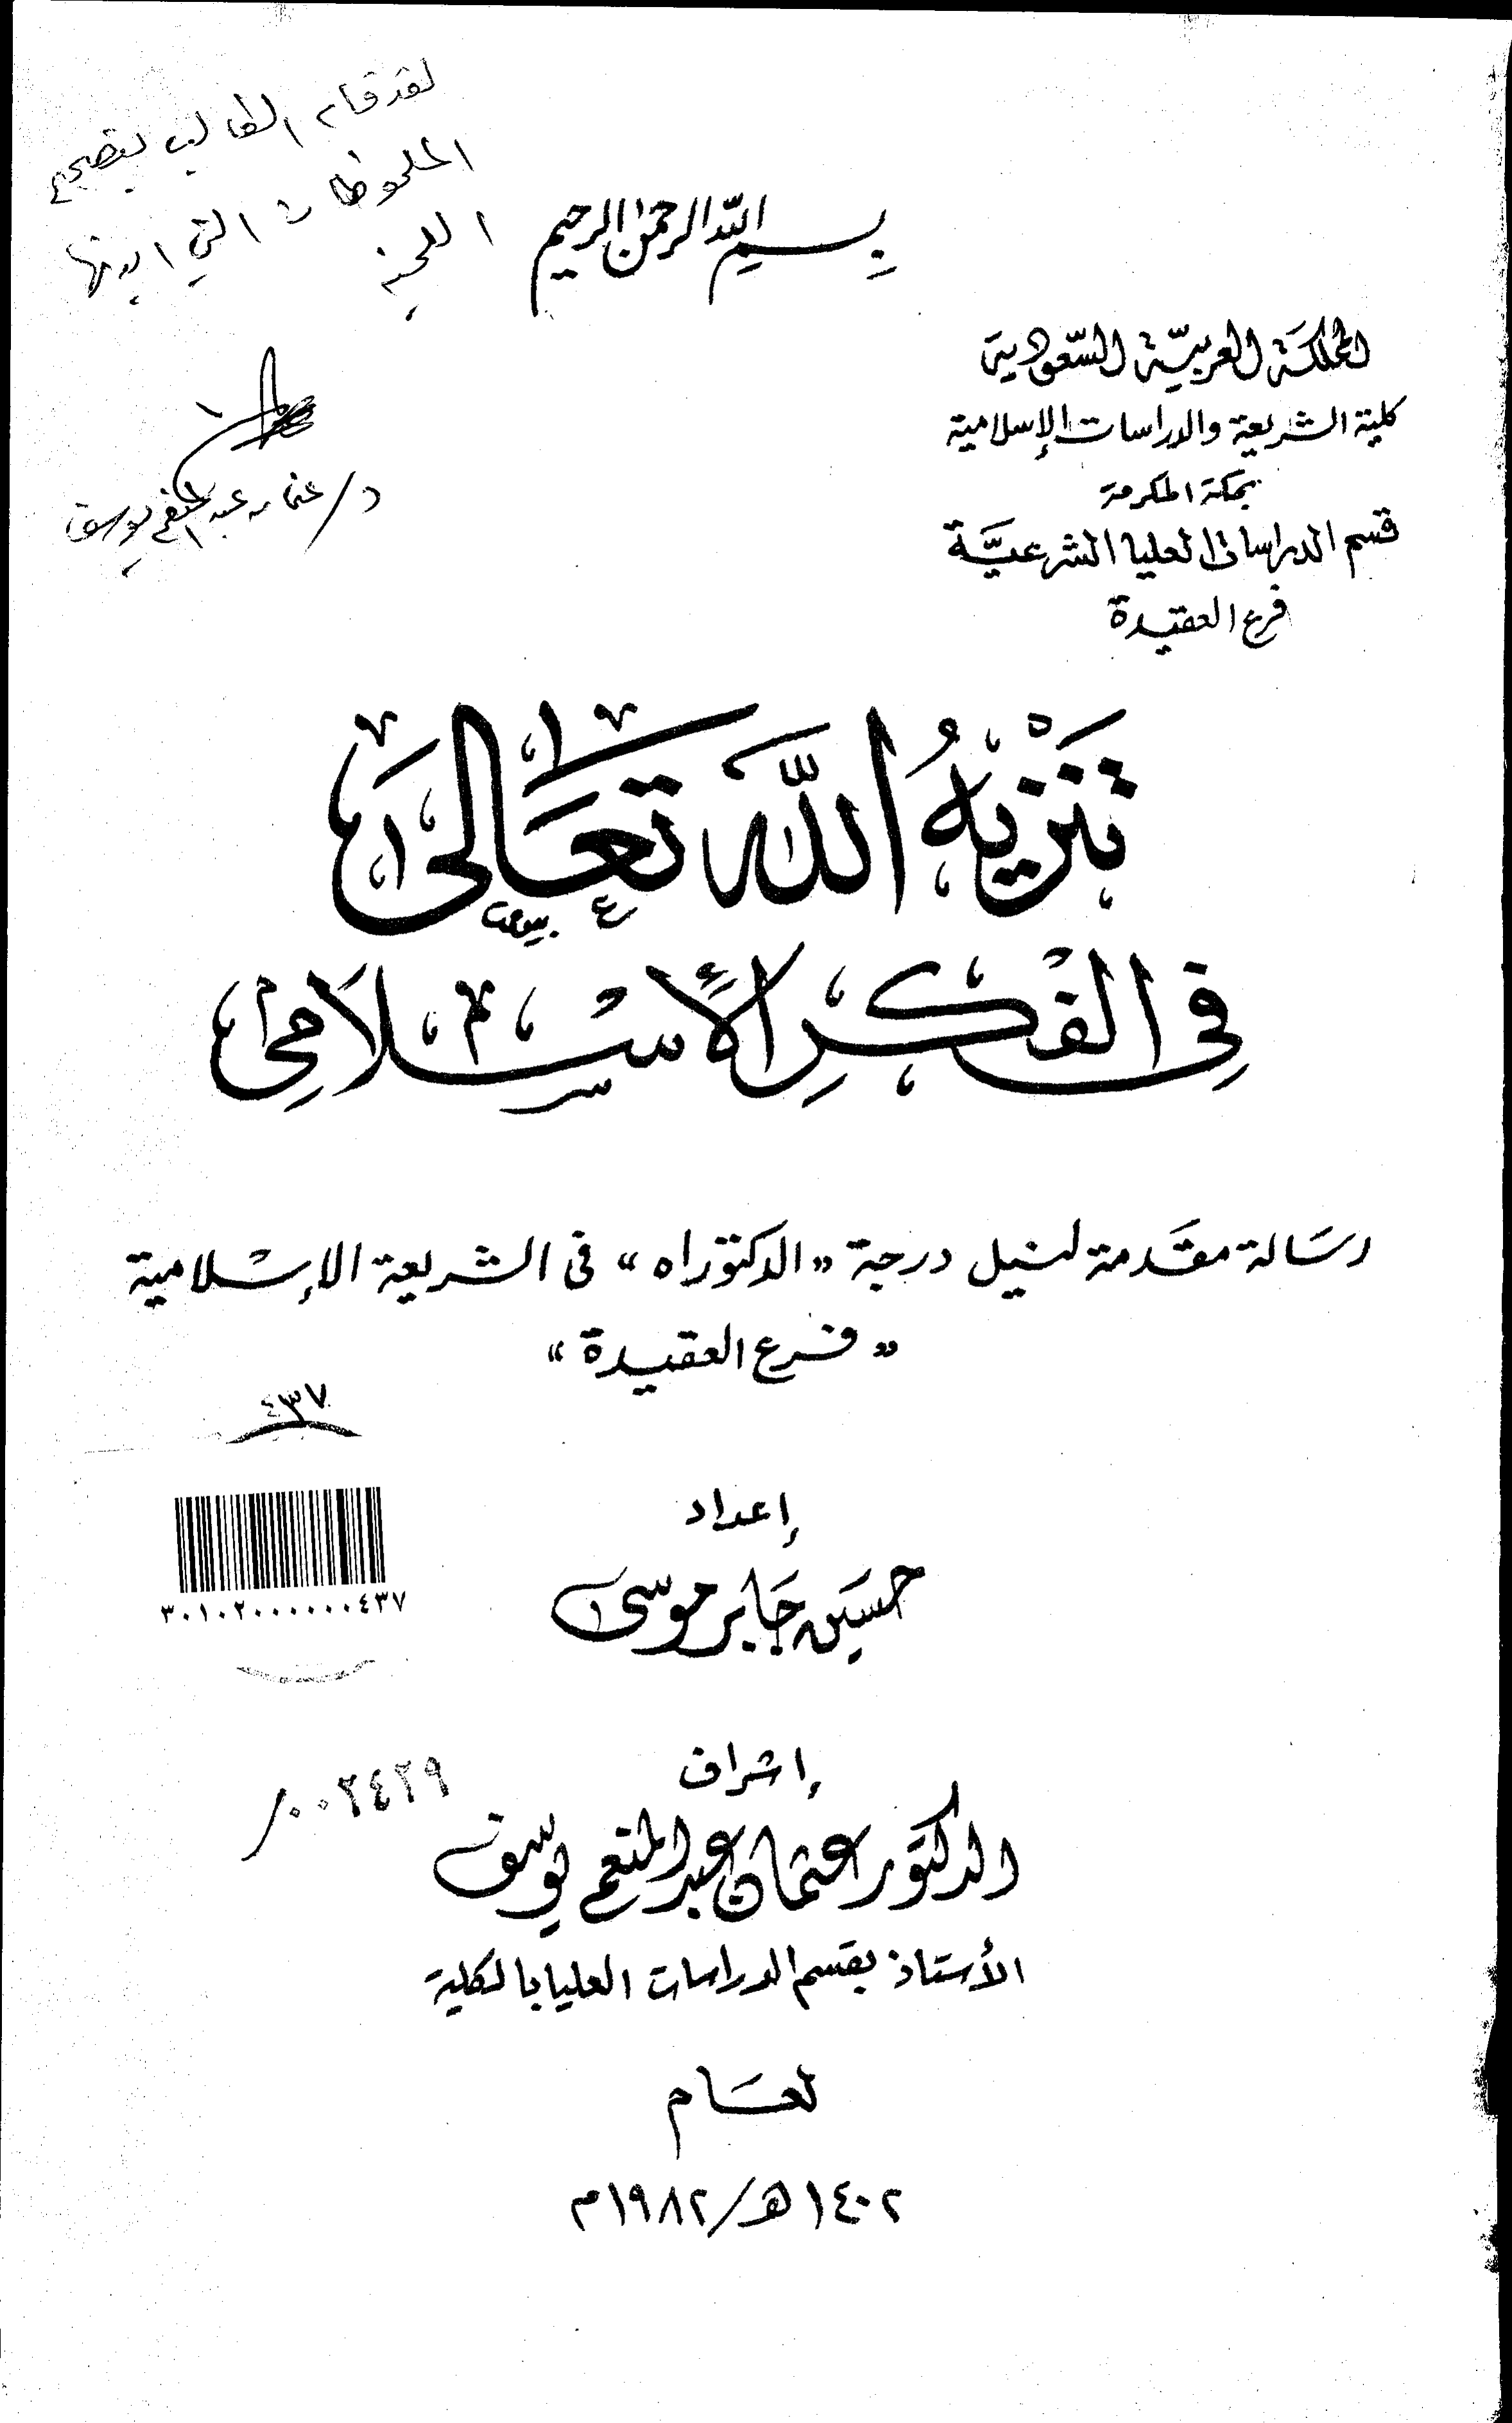 لقد قام الطالب بتصحيح
الملحوظات التي ابدتها
اللجنة
د/ عثمان عبد المنعم يوسف
بسم الله الرحمن الرحيم
المملكة العربيّة السّعودية
كلية الشريعة والدراسات الإسلامية
بمكة المكرمة
قسم الدراسات العليا الشرعيَّة
فرع العقيدة
تَنْزِيهُ اللَّه تَعَالَىٰ
فِي الفِكْرِ الإِسْلَامِي
رسَالة مقَدمة لنيل درجة «الدكتوراه» فى الشريعة الإسْلامية
«فرع العقيدة»
٤٣٧
٣٠١٠٢٠٠٠٠٠٠٤٣٧
إعداد
حسَين جَابر موسى
إشراف
٠٠٢٤٢٩
الدكتور عثمان عبد المنعم يوسف
الأستاذ بقسم الدراسات العليا بالكلية
لعَام
١٤٠٢هـ/١٩٨٢م